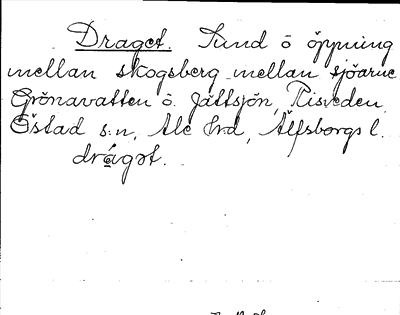 Draget. Sund o öppning
mellan skogsberg mellan sjöarne
Grönavatten o. Jättsjön, Risveden,
Östad s:n, Ale hrd, Älfsborgs l.
drágət.